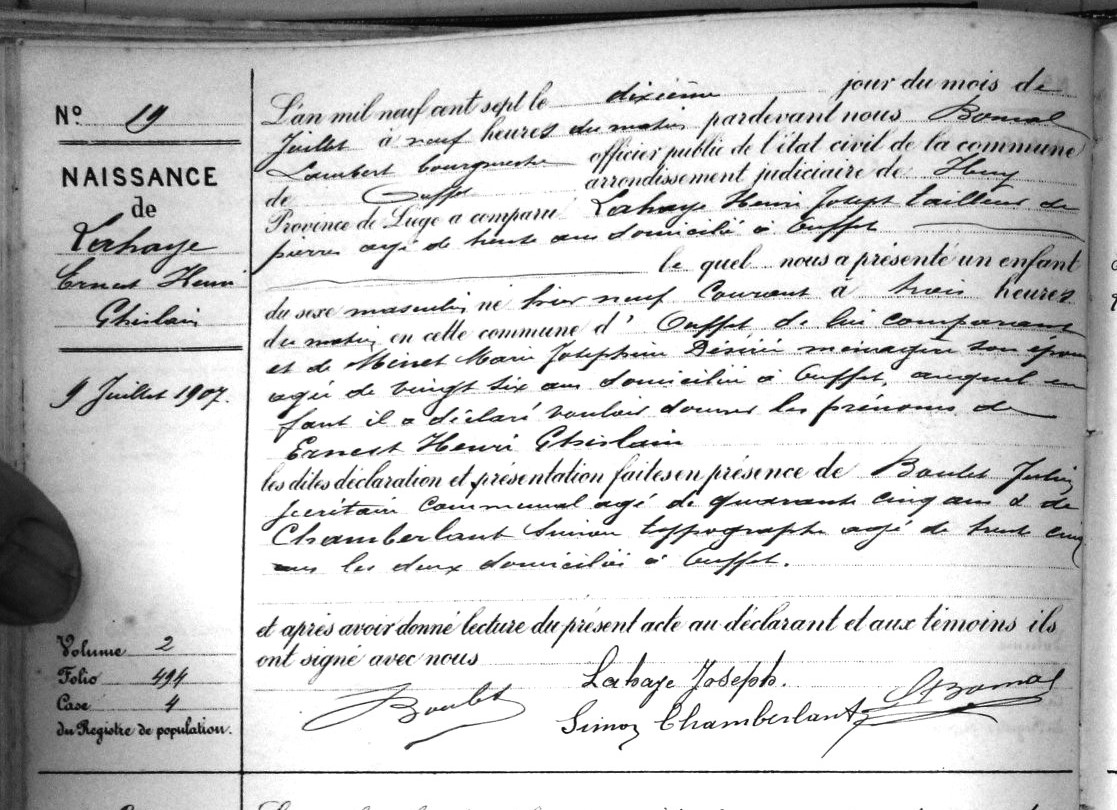 N° 19
NAISSANCE
de
Lahaye
Ernest Henri
Ghislain
9 Juillet 1907.
Volume 2
Folio 494
Case 4
du Registre de population.
L'an mil neuf cent sept le dixième jour du mois de
Juillet à neuf heures du matin pardevant nous Bomal
Lambert bourgmestre officier public de l'état civil de la commune
de Ouffet arrondissement judiciaire de Huy
Province de Liége a comparu Lahaye Henri Joseph tailleur de
pierres agé de trente ans domicilié à Ouffet
le quel nous a présenté un enfant
du sexe masculin né hier neuf Courant à trois heures
du matin en cette commune d' Ouffet de lui comparant
et de Minet Marie Joséphine Désirée ménagère son épouse
agée de vingt six ans domiciliée à Ouffet, auquel en
fant il a déclaré vouloir donner les prénoms de
Ernest Henri Ghislain
les dites déclaration et présentation faites en présence de Boulet Julien
secrétaire Communal agé de quarante cinq ans & de
Chamberlant Simon typographe agé de trente cinq
ans les deux domiciliés à Ouffet.
et après avoir donné lecture du présent acte au déclarant et aux témoins ils
ont signé avec nous
Lahaye Joseph.
Boulet
Simon Chamberlant
LBomal